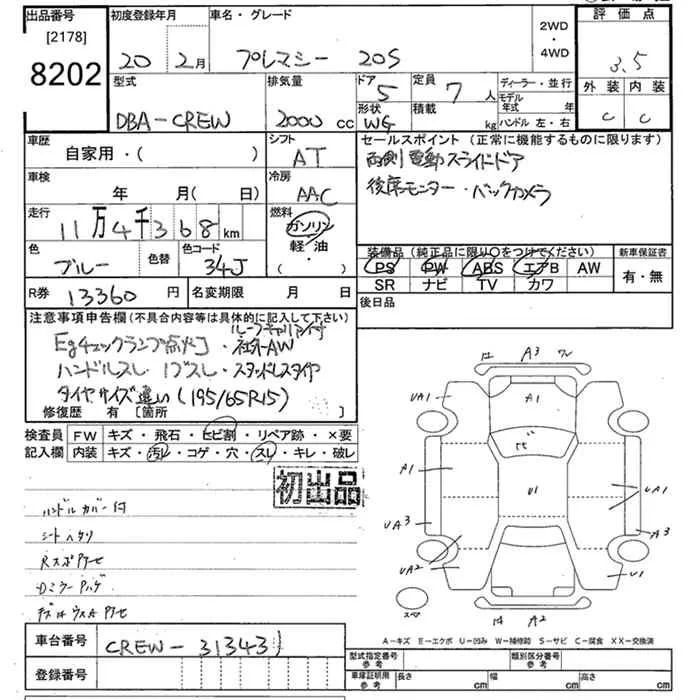 出品番号 初度登録年月 車名・グレード 2WD・4WD 評価点
[2178]
8202
20 2月 プレマシー 20S
3.5
型式 排気量 ドア 定員 ディーラー・並行
5 7人 モデル年式 年
外装 内装
C C
DBA-CREW 2000cc 形状 積載 ハンドル 左・右
WG kg
車歴 シフト セールスポイント(正常に機能するものに限ります)
自家用・( ) AT 両側電動スライドドア
車検 冷房 後席モニター・バックカメラ
年 月( 日) AAC
走行 燃料
11万4千368km ガソリン
軽・油
・( )
色 色替 色コード 装備品(純正品に限り○をつけてください) 新車保証書
ブルー 34J PS PW ABS エアB AW 有・無
SR ナビ TV カワ
R券 13360円 名変期限 月 日 後日品
注意事項申告欄(不具合内容等は具体的に記入して下さい)
ルーフキャリア付
Egチェックランプ点灯・社外AW
ハンドルスレ・スタッドレスタイヤ
タイヤサイズ違い(195/65R15)
修復歴 有[箇所 ]
検査員 FW キズ・飛石・ヒビ割・リペア跡・×要
記入欄 内装 キズ・汚レ・コゲ・穴・スレ・キレ・破レ
初出品
ハンドルカバー付
シートヘタリ
RスポアセD
A3
A1
UA1
A1
U1
UA1
UA3
A3
UA2
U1
A2
スペア
A-キズ E-エクボ U-凹み W-補修跡 S-サビ C-腐食 XX-交換済
車台番号 CREW-313431
登録番号
型式指定番号 参考 類別区分番号 参考
車庫証明用 参考 長さ cm 幅 cm 高さ cm